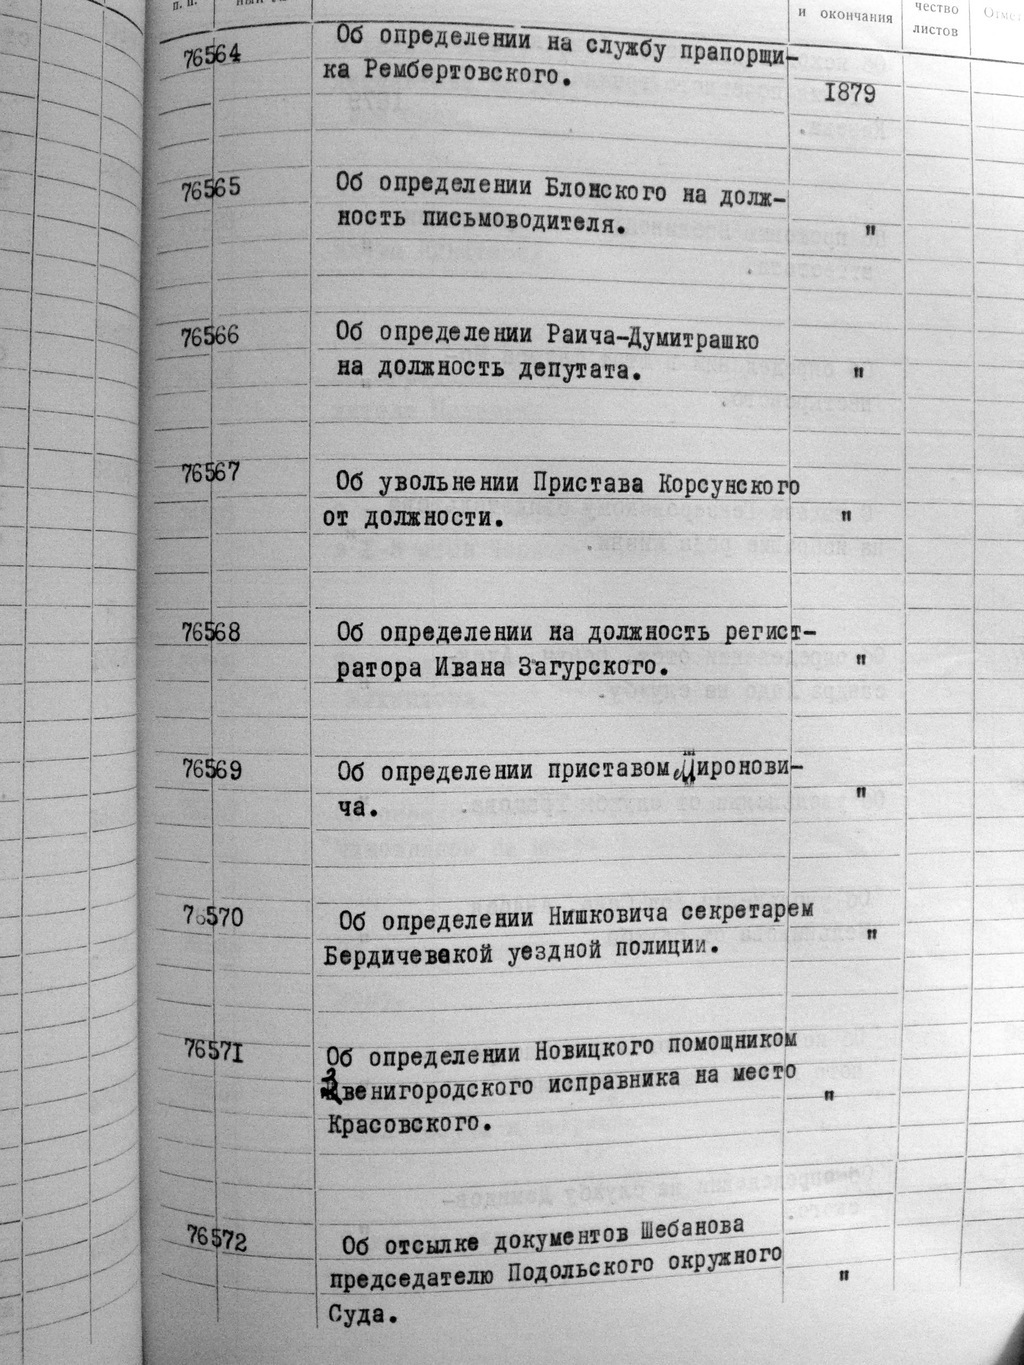 п. п.
и окончания
чество
листов
76564
Об определении на службу прапорщи-
ка Рембертовского.
1879
76565
Об определении Блонского на долж-
ность письмоводителя.
"
76566
Об определении Раича-Думитрашко
на должность депутата.
"
76567
Об увольнении Пристава Корсунского
от должности.
"
76568
Об определении на должность регист-
ратора Ивана Загурского.
"
76569
Об определении приставом Миронови-
ча.
"
76570
Об определении Нишковича секретарем
Бердичевакой уездной полиции.
"
76571
Об определении Новицкого помощником
Звенигородского исправника на место
Красовского.
"
76572
Об отсылке документов Шебанова
председателю Подольского окружного
Суда.
"